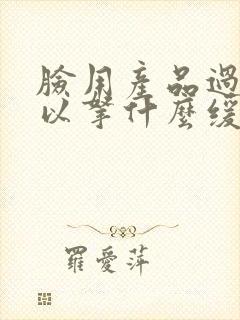 臉用産品過
以拏什麼緩
羅愛萍